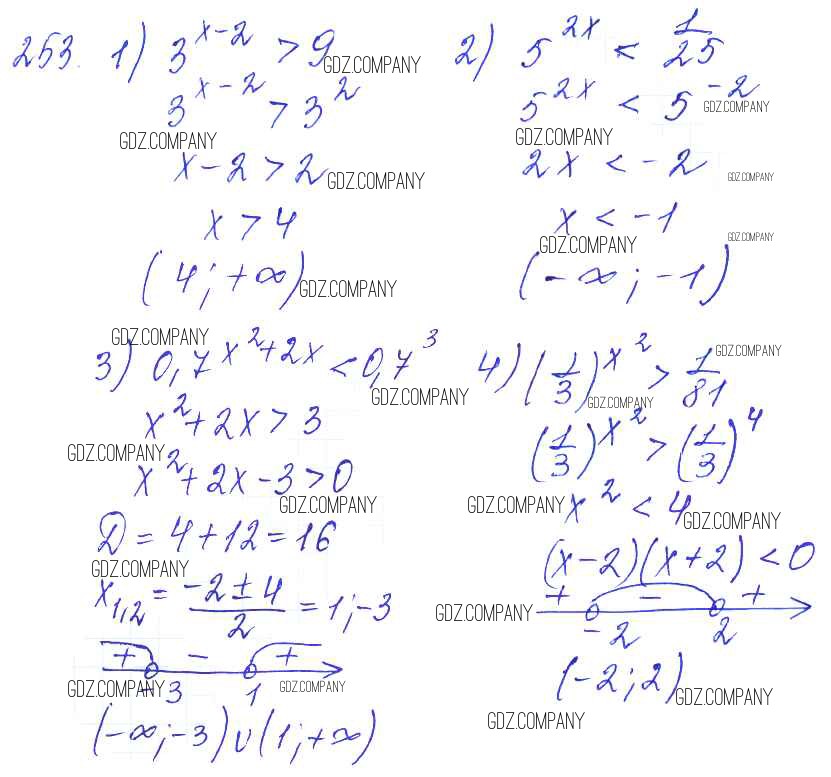 253. 1) 3^{x-2} > 9
GDZ.COMPANY
3^{x-2} > 3^2
GDZ.COMPANY
x-2 > 2
GDZ.COMPANY
x > 4
(4; +∞)
GDZ.COMPANY
2) 5^{2x} < 1/25
5^{2x} < 5^{-2}
GDZ.COMPANY
GDZ.COMPANY
2x < -2
GDZ.COMPANY
x < -1
GDZ.COMPANY
GDZ.COMPANY
(-∞; -1)
GDZ.COMPANY
3) 0,7^{x^2+2x} < 0,7^3
GDZ.COMPANY
x^2+2x > 3
GDZ.COMPANY
x^2+2x-3 > 0
GDZ.COMPANY
D = 4+12 = 16
GDZ.COMPANY
x_{1,2} = (-2 ± 4)/2 = 1; -3
+ - +
-3 1
GDZ.COMPANY
GDZ.COMPANY
(-∞; -3) ∪ (1; +∞)
4) (1/3)^{x^2} > 1/81
GDZ.COMPANY
GDZ.COMPANY
(1/3)^{x^2} > (1/3)^4
x^2 < 4
GDZ.COMPANY
GDZ.COMPANY
(x-2)(x+2) < 0
+ - +
GDZ.COMPANY
-2 2
(-2; 2)
GDZ.COMPANY
GDZ.COMPANY